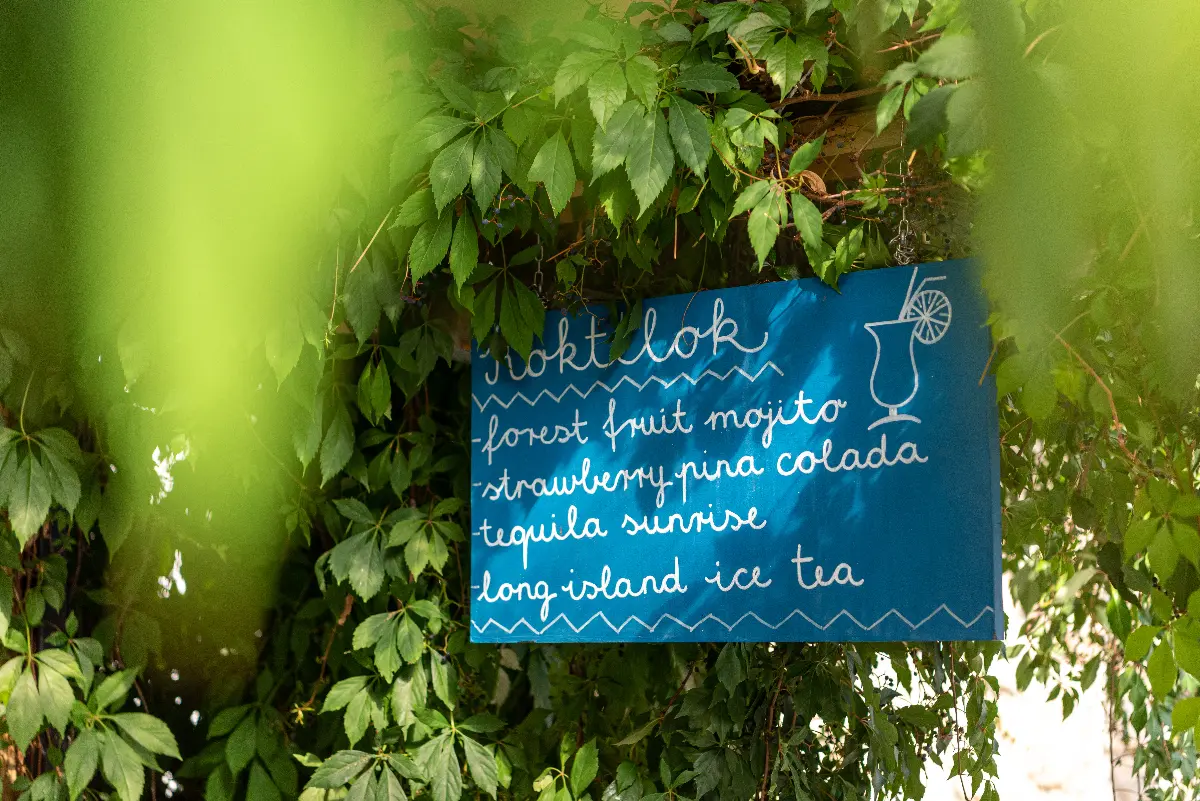 Koktélok
-forest fruit mojito
-strawberry pina colada
-tequila sunrise
-long island ice tea